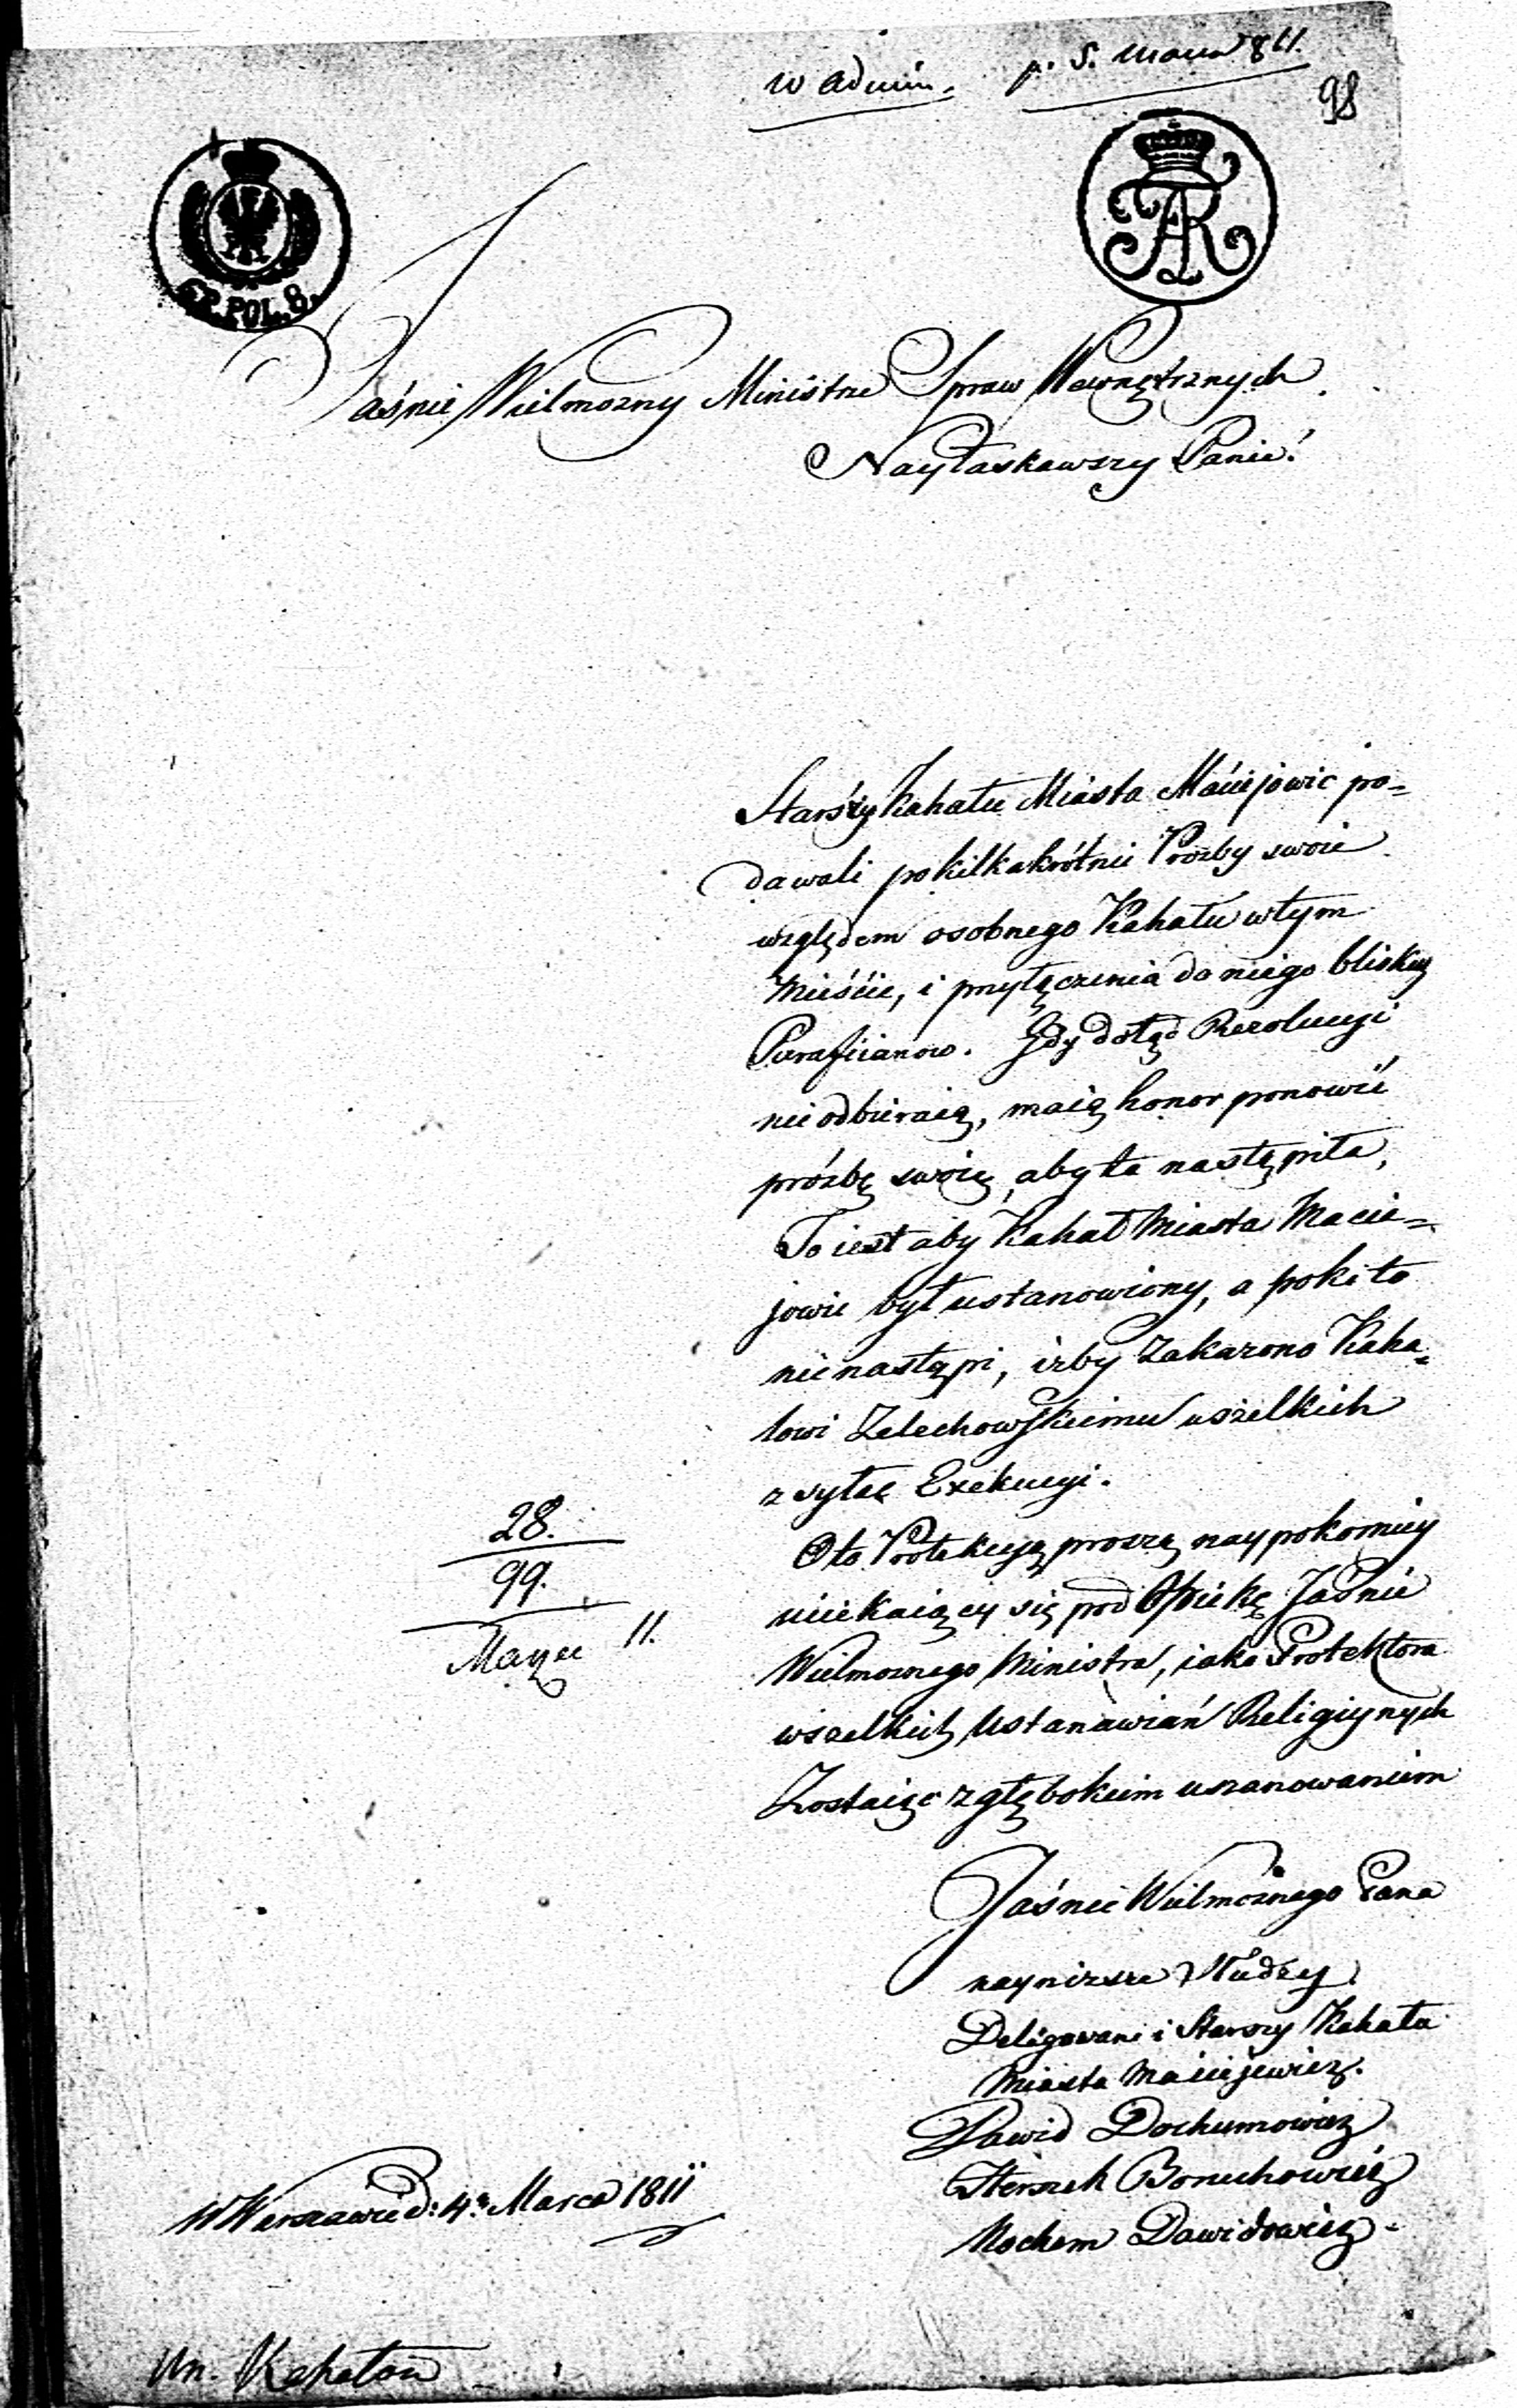 w admin. p. 5. marca 811.
98
GR. POL. 8.
FAR
Jaśnie Wielmozny Ministrze Spraw Wewnętrznych
Nayłaskawszy Panie!
Starśzy Kahału Miasta Maciejowic po=
dawali po kilkakrótnie Prozby swoie
względem osobnego Kahału w tym
Mieście, i przyłączenia do niego bliskiey
Parafiianow. Gdy dotąd Rezolucyi
nie odbieraią, maią honor ponowić
próźbę swoię, aby ta nastąpiła,
To iest aby Kahał Miasta Macie=
jowic był ustanowiony, a poki to
nie nastąpi, izby Zakazono Kaha=
łowi Zelechowskiemu wszelkich
zsyłać Exekucyi.
Oto Protekcyą proszą naypokorniey
uciekaiący się pod Opiekę Jaśnie
Wielmoznego Ministra, iako Protektora
wszelkich Ustanawiań Religiynych
Zostaiąc z głębokiem uszanowaniem
Jaśnie Wielmożnego Pana
nayniższe Słudzy
Deligowani i Starszy Kahału
Miasta Maciejewicz.
28.
99.
Marzec 11.
Dawid Dochumowicz
Herszek Boruchowicz
Nochem Dawidowicz
W Warszawie d: 4. Marca 1811
Kahałow